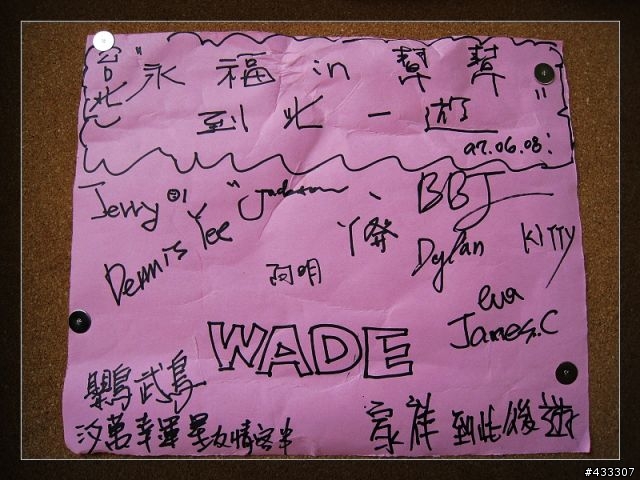 台北 "永福 in 幫幫"
到此一遊
97.06.08
Jerry
Jackson
BBJ
Dennis Yee
阿明
丫發
Dylan
KITTY
eva
WADE
James.C
武鳥
汐萬幸運星友情客串
家祥 到此後遊
#433307